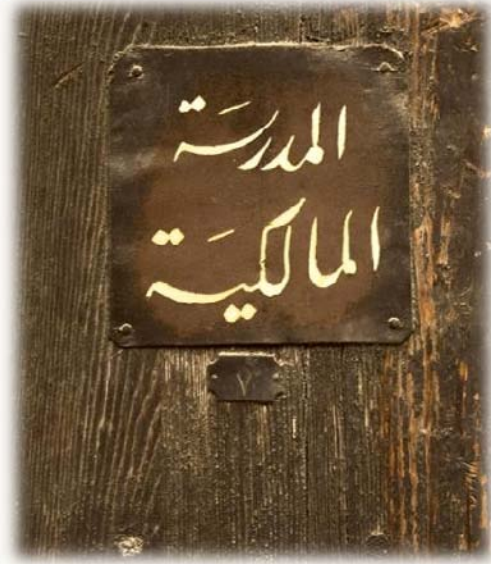 المدرسَة
المالكيَة
٧